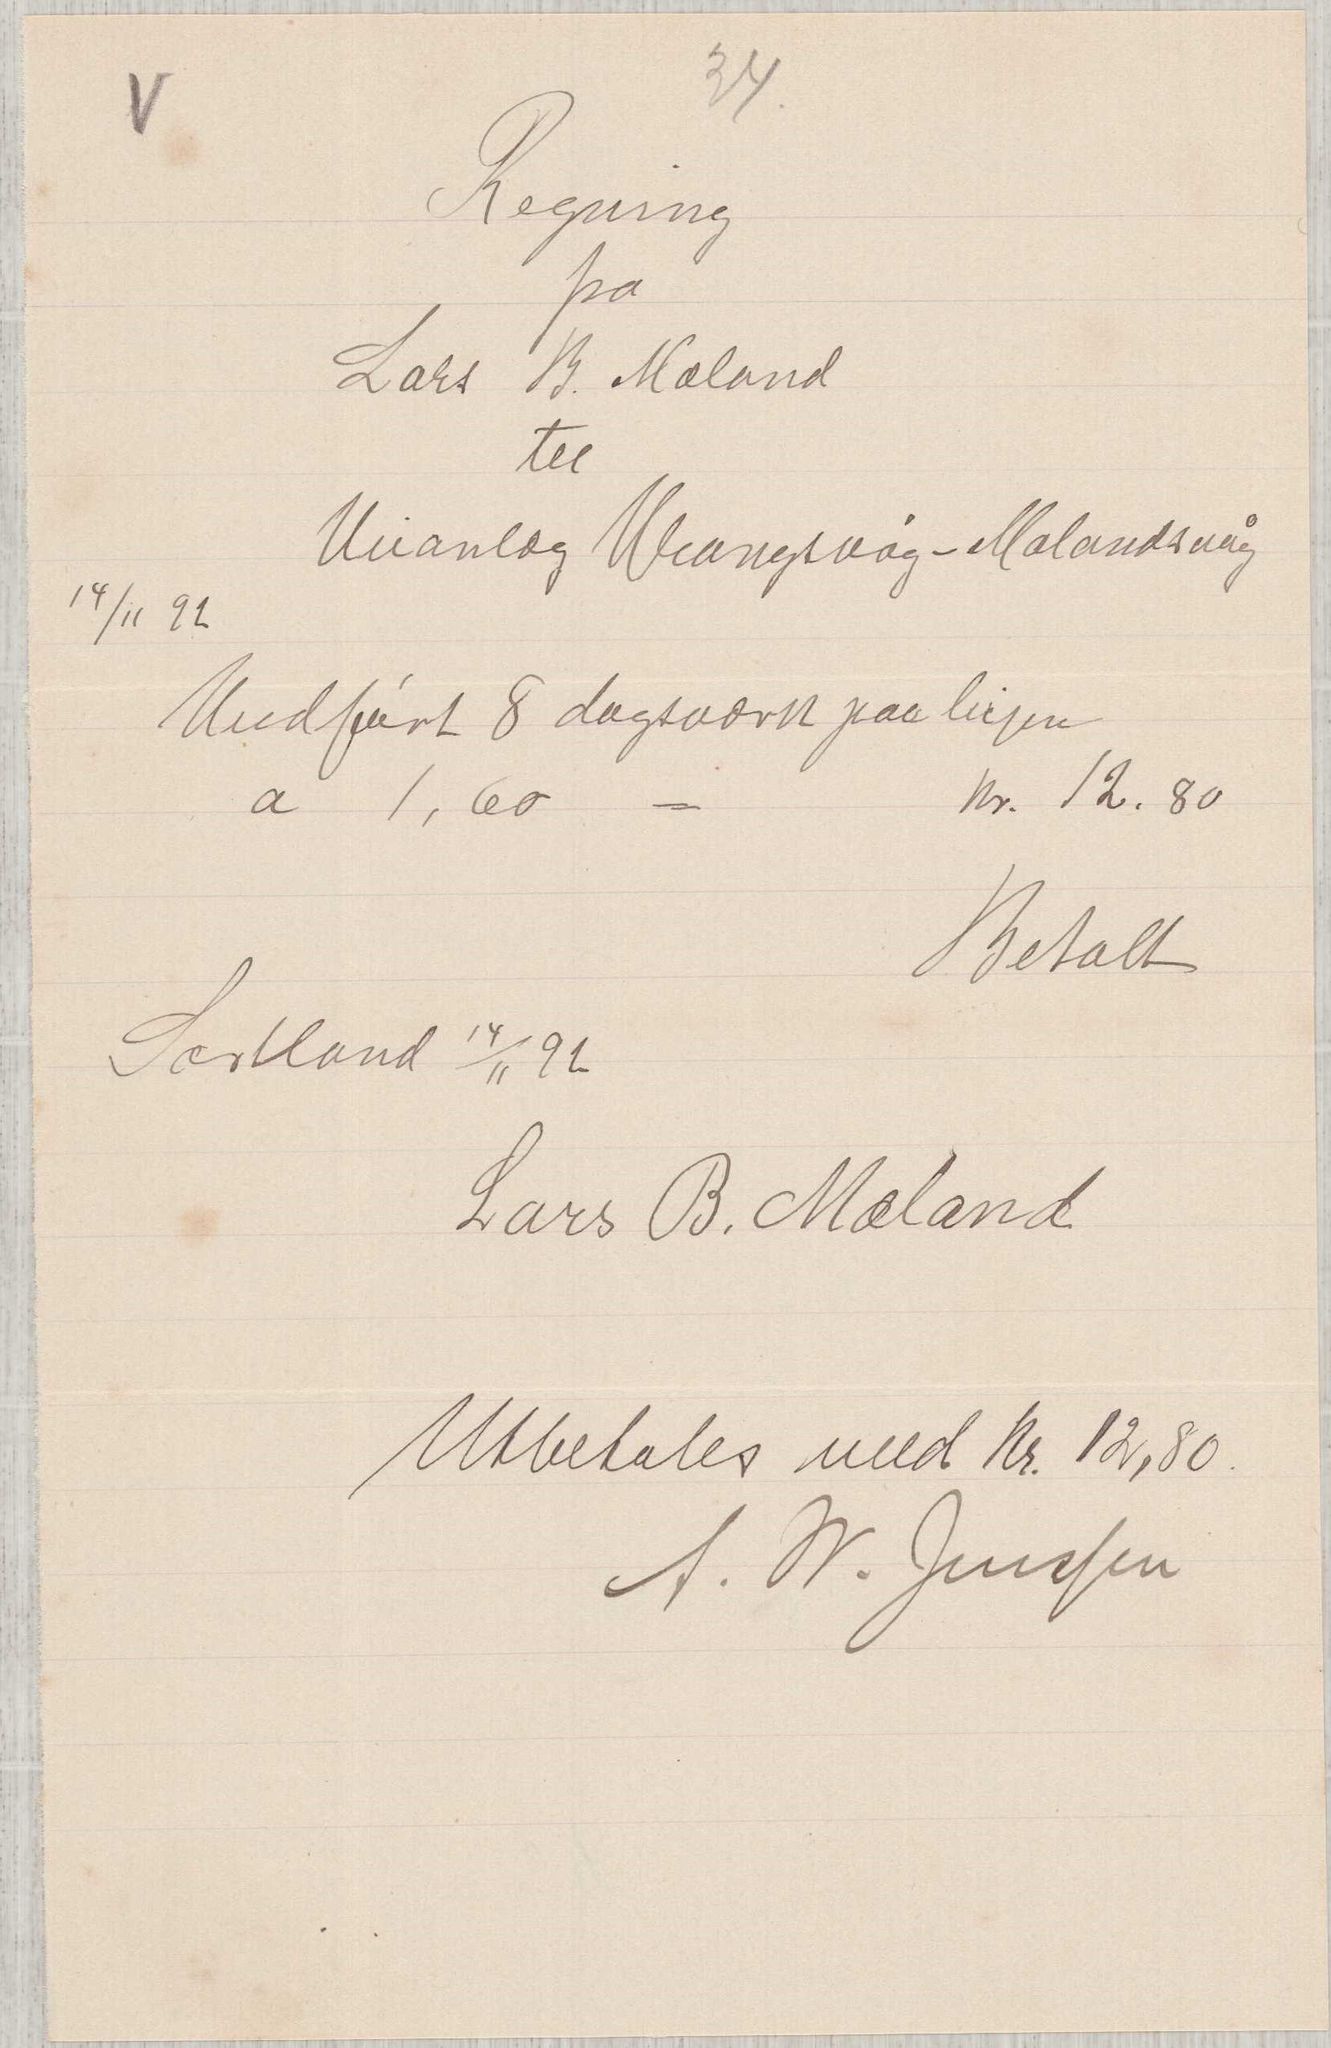 V
34.
Regning
fra
Lars B. Mæland
til
Veianlæg Vrangsvåg-Mælandsvåg
14/11 92
Uudført 8 dagsværk paa linjen
a 1,60 = Kr. 12.80
Betalt
Sortland 14/11 92
Lars B. Mæland
Utbetales med Kr. 12,80.
A. W. Jenssen